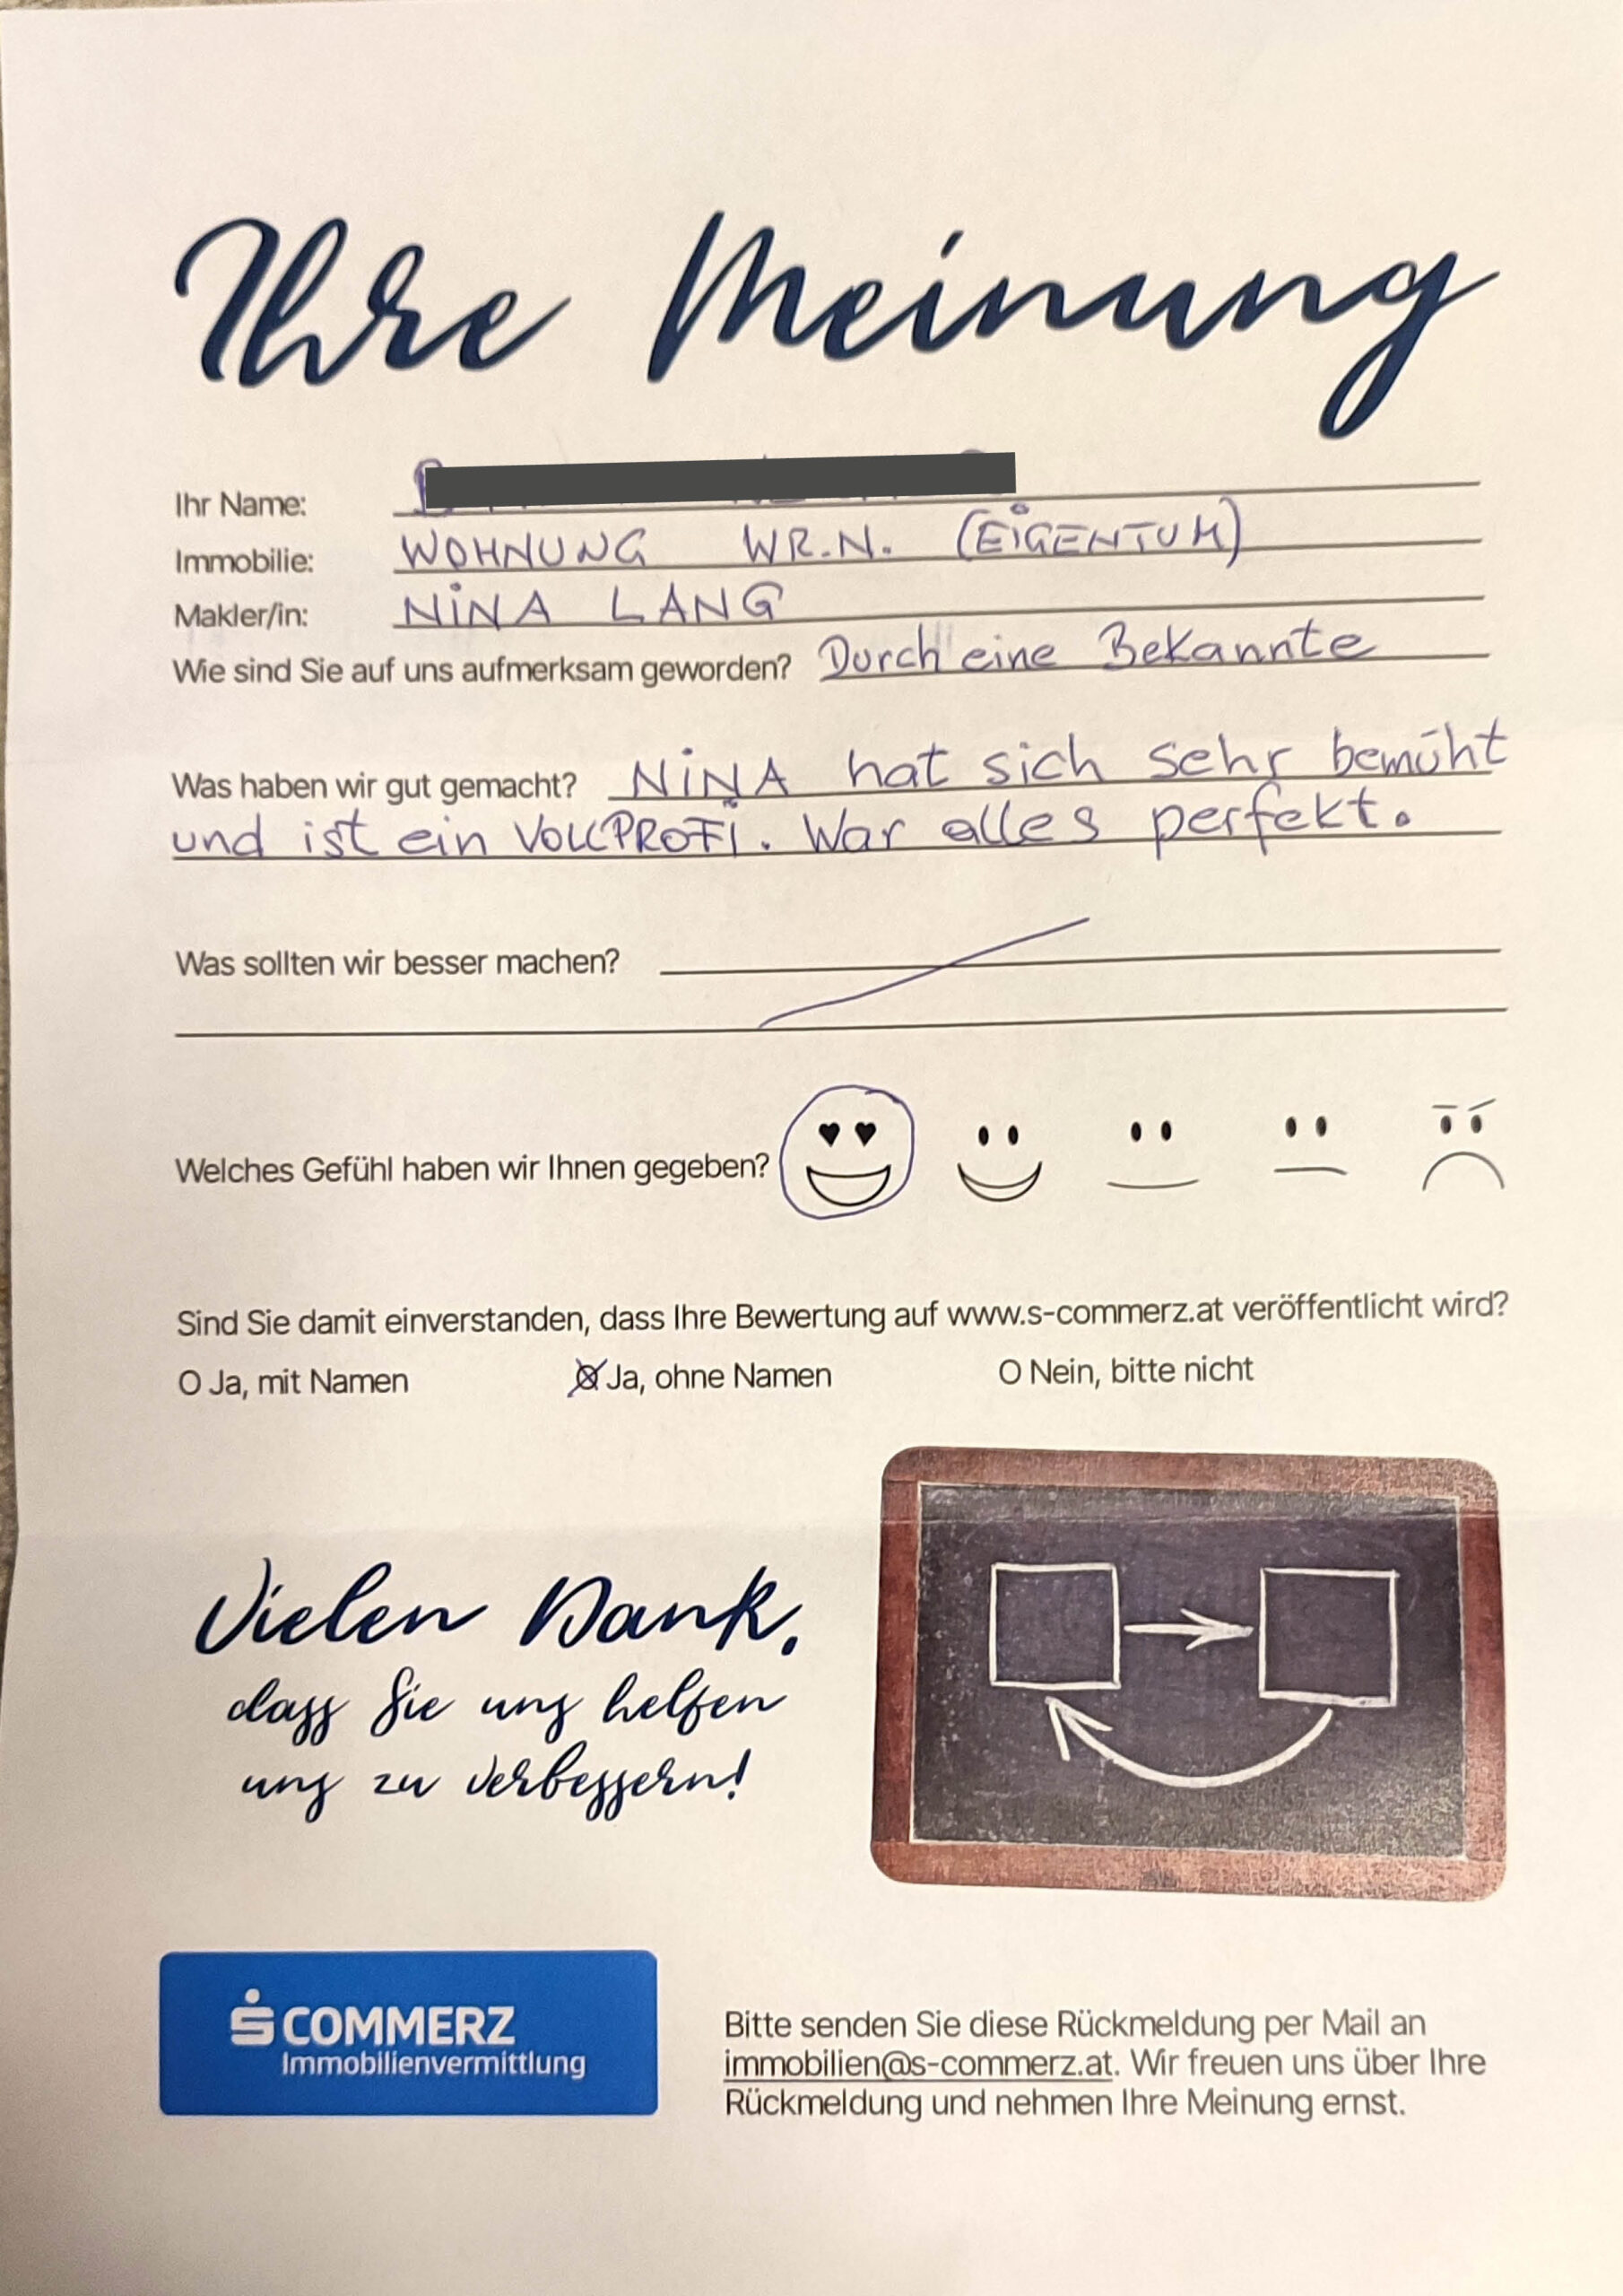 Ihre Meinung
Ihr Name:
Immobilie: WOHNUNG WR.N. (EIGENTUM)
Makler/in: NINA LANG
Wie sind Sie auf uns aufmerksam geworden? Durch eine Bekannte
Was haben wir gut gemacht? NINA hat sich sehr bemüht
und ist ein VOLLPROFI. War alles perfekt.
Was sollten wir besser machen?
Welches Gefühl haben wir Ihnen gegeben?
Sind Sie damit einverstanden, dass Ihre Bewertung auf www.s-commerz.at veröffentlicht wird?
O Ja, mit Namen O Ja, ohne Namen O Nein, bitte nicht
Vielen Dank,
dass Sie uns helfen
uns zu verbessern!
S COMMERZ
Immobilienvermittlung
Bitte senden Sie diese Rückmeldung per Mail an
immobilien@s-commerz.at. Wir freuen uns über Ihre
Rückmeldung und nehmen Ihre Meinung ernst.